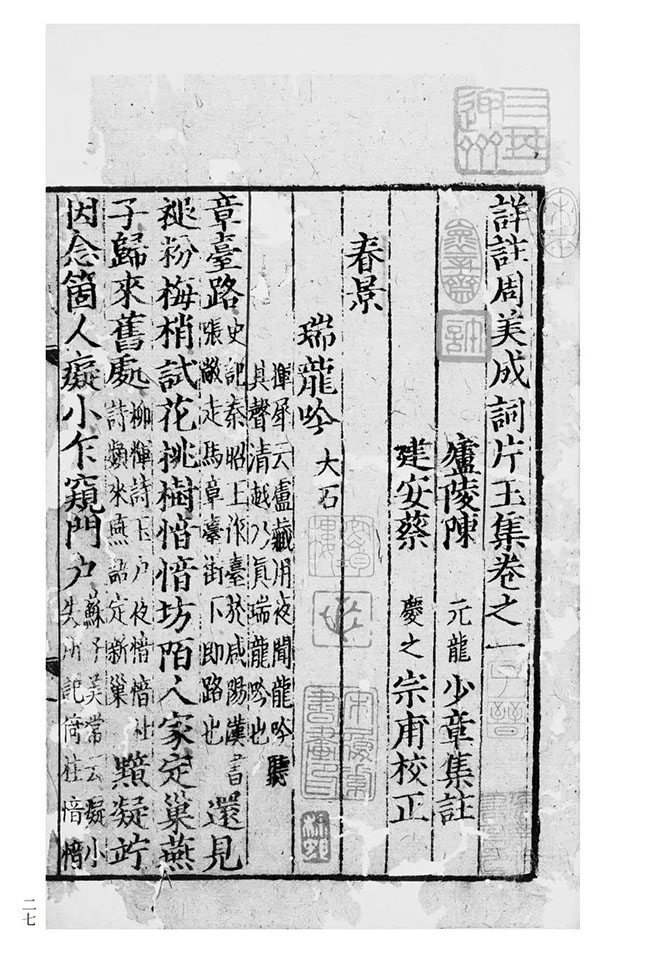 詳註周美成詞片玉集卷之一
廬陵陳 元龍 少章集註
建安蔡 慶之 宗甫校正
春景
瑞龍吟 大石
揮犀云盧藏用夜聞龍吟聽
其聲清越乃真瑞龍吟也
章臺路 史記秦昭王作臺於咸陽漢書張敞走馬章臺街下即路也 還見
褪粉梅梢試花桃樹愔愔坊陌人家定巢燕
子歸來舊處 柳惲詩玉户夜愔愔杜詩頻來燕語定新巢 黯凝竚
因念箇人癡小乍窺門户 蘇子美常云癡小失所記倚柱愔愔
二七